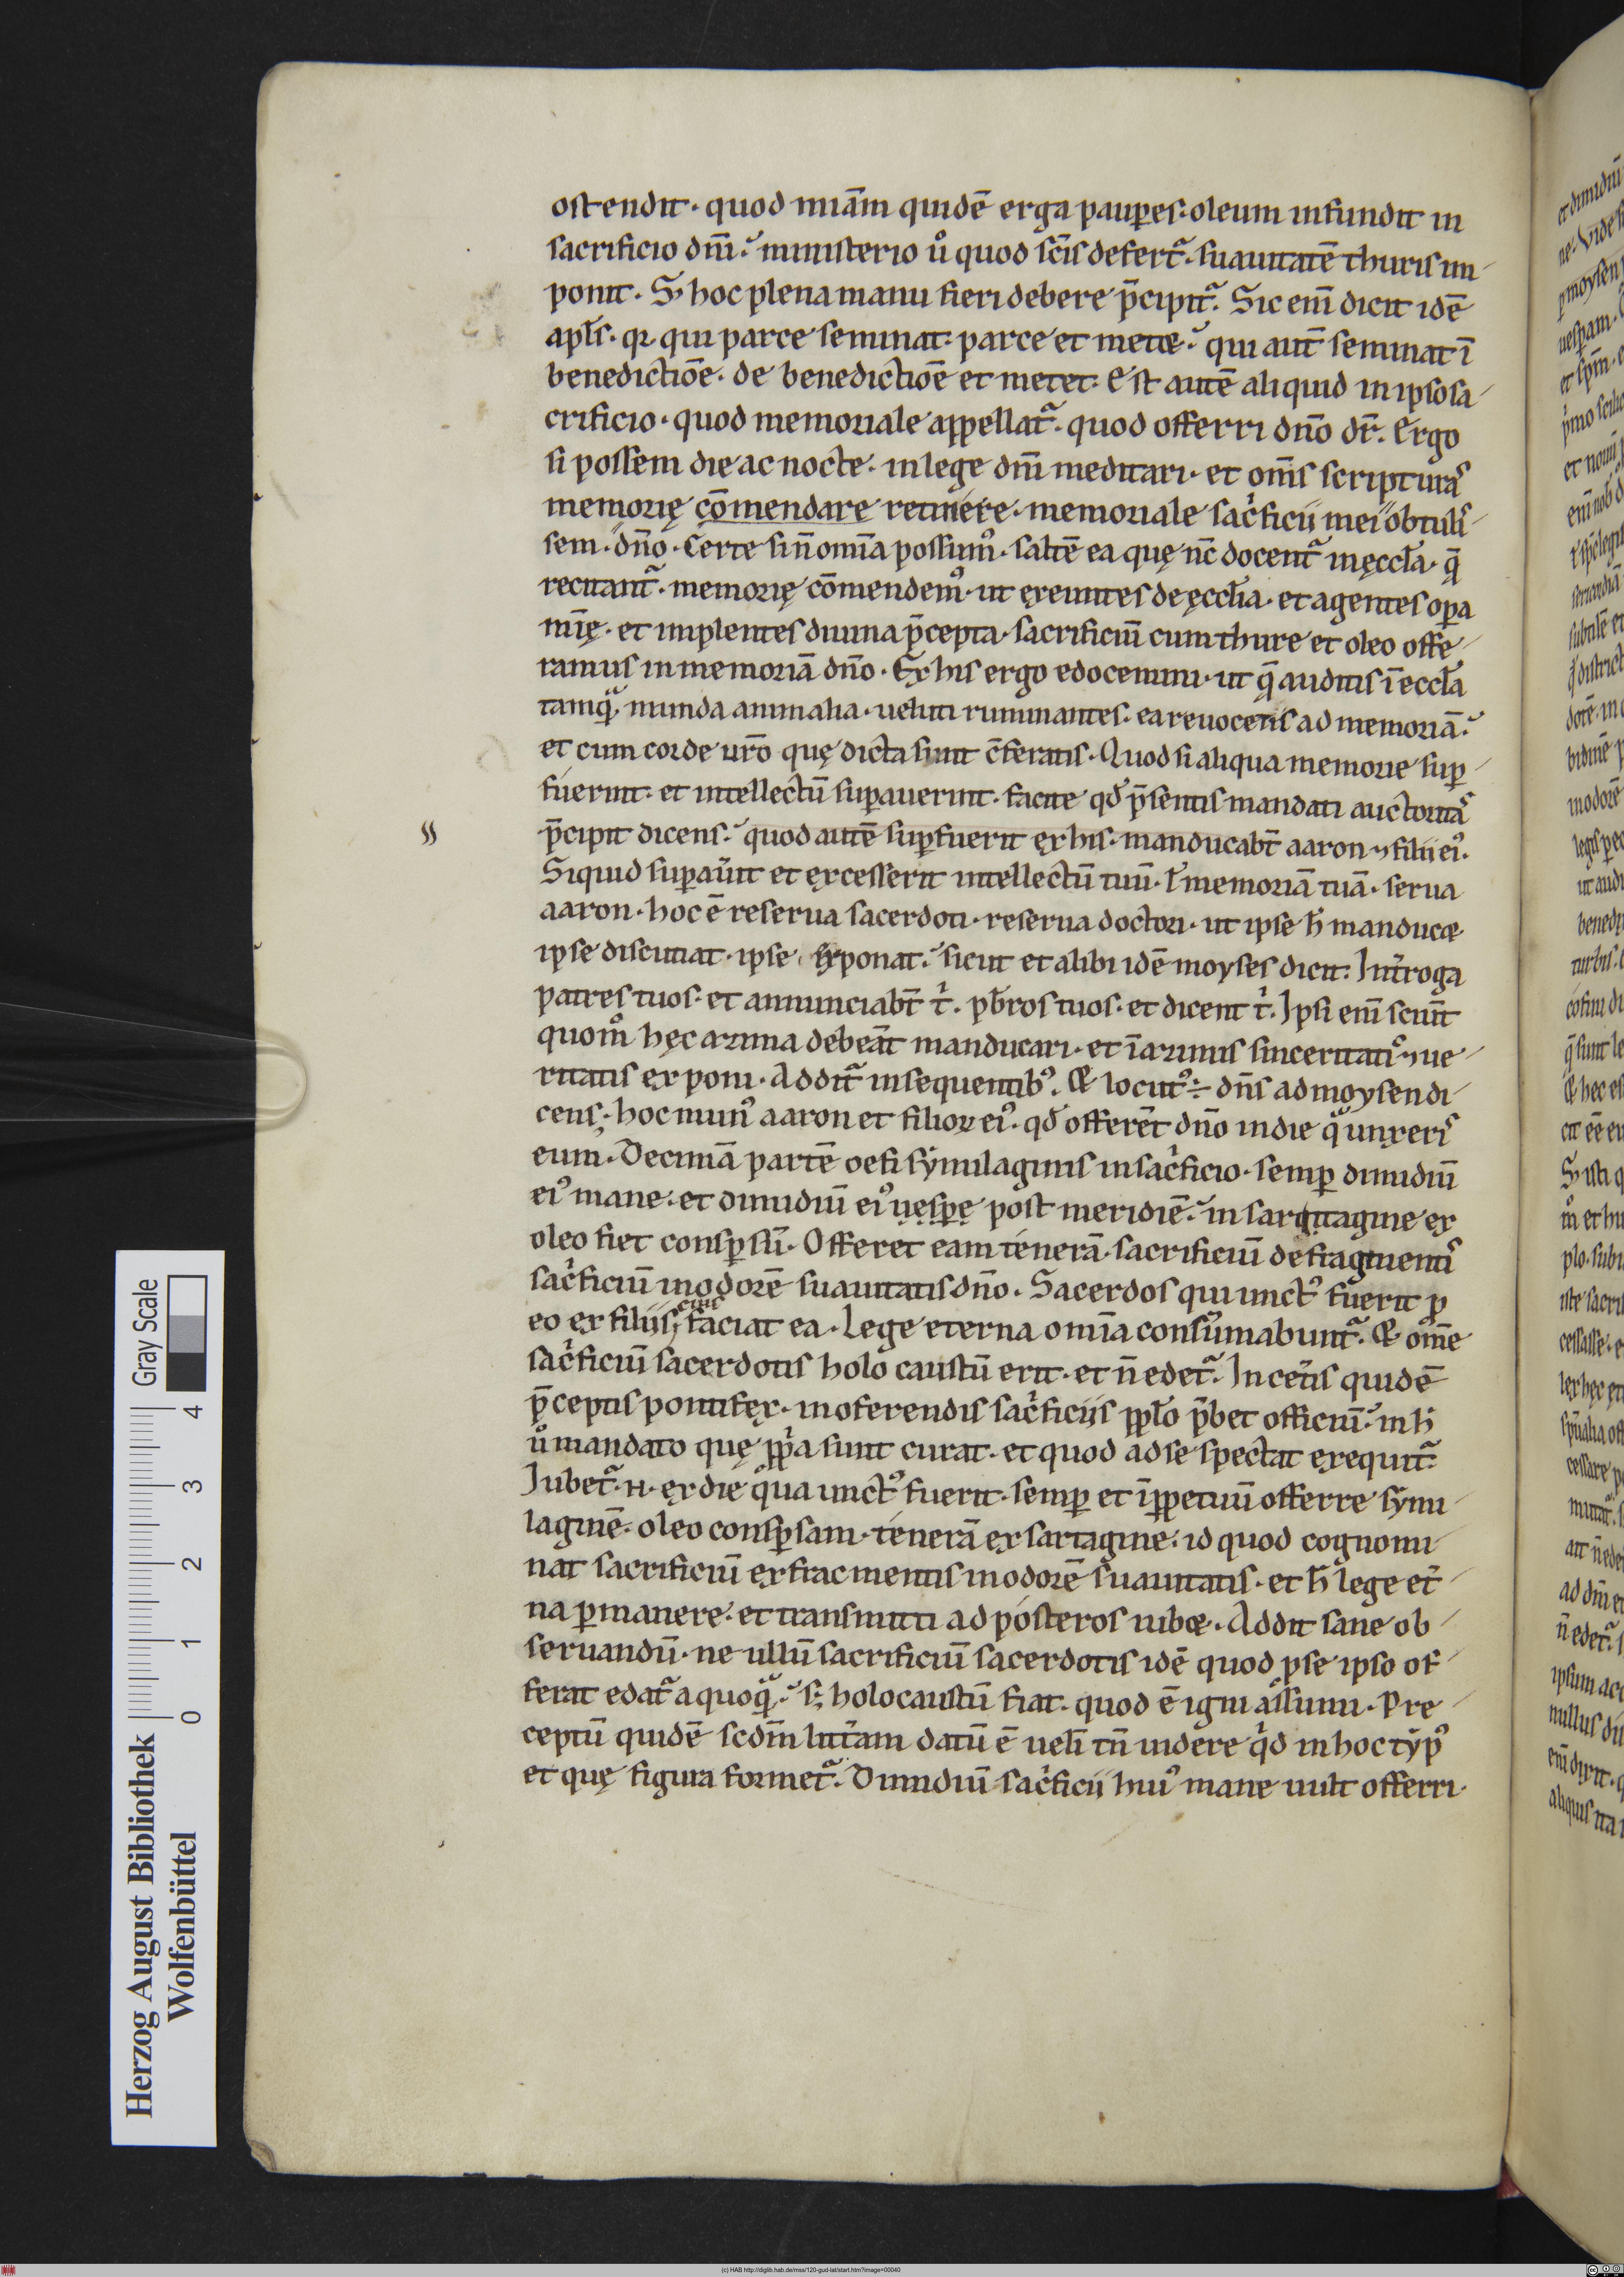 ostendit · quod mīam quidē erga paupes · oleum infundit in
sacrificio dnī · ministerio ů quod scīs defert᷑ · suauitatē thuris im-
ponit · S; hoc plena manu fieri debere p̄cipit᷑ · Sic enī dicit idē
apłs · qꝛ qui parce seminat · parce et metet · qui aut̄ seminat ī
benedictiōe · de benedictiōe et metet · Est autē aliquid in ipso sa-
crificio · quod memoriale appellat᷑ · quod offerri dn̄o dr̄ · Ergo
si possem die ac nocte · in lege dnī meditari · et om̄s scripturas
memorię cōmendare retinere · memoriale sac̓ficii mei obtulis-
sem · dn̄o · Certe si n̄ omīa possum᷒ · saltē ea quę nc̄ docent᷑ in ęccła · ꝗ̄
recitant᷑ · memorię cōmendem᷒ · ut exeuntes de ęccłia · et agentes opa
mīę · et implentes diuina p̄cepta · sacrificiū cum thure et oleo offe-
ramus in memoriā dn̄o · Ex his ergo edocemini · ut ꝗ̄ auditis ī eccła
tamꝗᷓ munda animalia · ueluti ruminantes · ea reuocetis ad memoriā ·
et cum corde ur̄o quę dicta sunt c̄feratis · Quod si aliqua memorie suꝑ-
fuerint · et intellectū suꝑauerint · facite qđ p̄sentis mandati auctoritas
p̄cipit dicens · quod autē suꝑfuerit ex his · manducabt̄ aaron ⁊ filii ei᷒ ·
Siquid suꝑaůit et excesserit intellectū tuū · ł memoriā tuā · serua
aaron · hoc ē reserua sacerdoti · reserua doctori · ut ipse h̄ manducet
ipse discutiat · ipse exponat · sicut et alibi idē moyses dicit · Int̓roga
patres tuos · et annunciabt̄ t̓ · pb̄ros tuos · et dicent t̓ · Ipsi enī sciūt
quom̊ hęc azima debeāt manducari · et ī azimis sinceritatis ⁊ ue-
ritatis exponi · Addit᷑ in sequentib᷒ · Et locut᷒ ÷ dn̄s ad moysen di-
cens · hoc mun᷒ aaron et filioꝝ ei᷒ · qđ offerēt dn̄o in die qᷓ unxeris
eum · Decimā partē oefi símilaginis in sac̓ficio · semꝑ dimidiū
ei᷒ mane · et dimidiū ei᷒ uespe post meridiē · in sartagine ex
oleo fiet conspsū · Offeret eam tenerā · sacrificiū de fragmentis
sac̓ficiū in odorē suauitatis dn̄o · Sacerdos qui unct᷒ fuerit ꝑ
eo ex filiis ei᷒ faciat ea · Lege eterna omīa consum̄abunt᷑ · Et om̄e
sac̓ficiū sacerdotis holo caustū erit · et n̄ edet᷑ · In cet̓is quidē
p̄ceptis pontifex · in oferendis sac̓ficiis ppło p̄bet officiū · in h̄
ů mandato quę ꝓp̓a sunt curat · et quod ad se spectat exequit᷑ ·
Jubet᷑ · n · ex die qua unct᷒ fuerit · semꝑ et īꝑpetuū offerre sými-
laginē · oleo conspsam · tenerā ex sartagine · id quod cognomi-
nat sacrificiū ex frac mentis in odorē suauitatis · et h̄ lege et̓-
na ꝑmanere · et transmitti ad posteros iubet · Addit sane ob-
seruandū · ne ullū sacrificiū sacerdotis idē quod ꝓ se ipso of-
ferat edat᷑ a quoꝗᷓ · s; holocaustū fiat · quod ē igni assumi · Pre-
ceptū quidē scdm̄ litt̓am datū ē uelī tn̄ uidere q̓d in hoc týp᷒
et quę figura formet᷑ · Dimidiū sac̓ficii hui᷒ mane uult offerri ·
Gray Scale
0 1 2 3 4
Herzog August Bibliothek
Wolfenbüttel
(c) HAB http://diglib.hab.de/mss/120-gud-lat/start.htm?image=00040